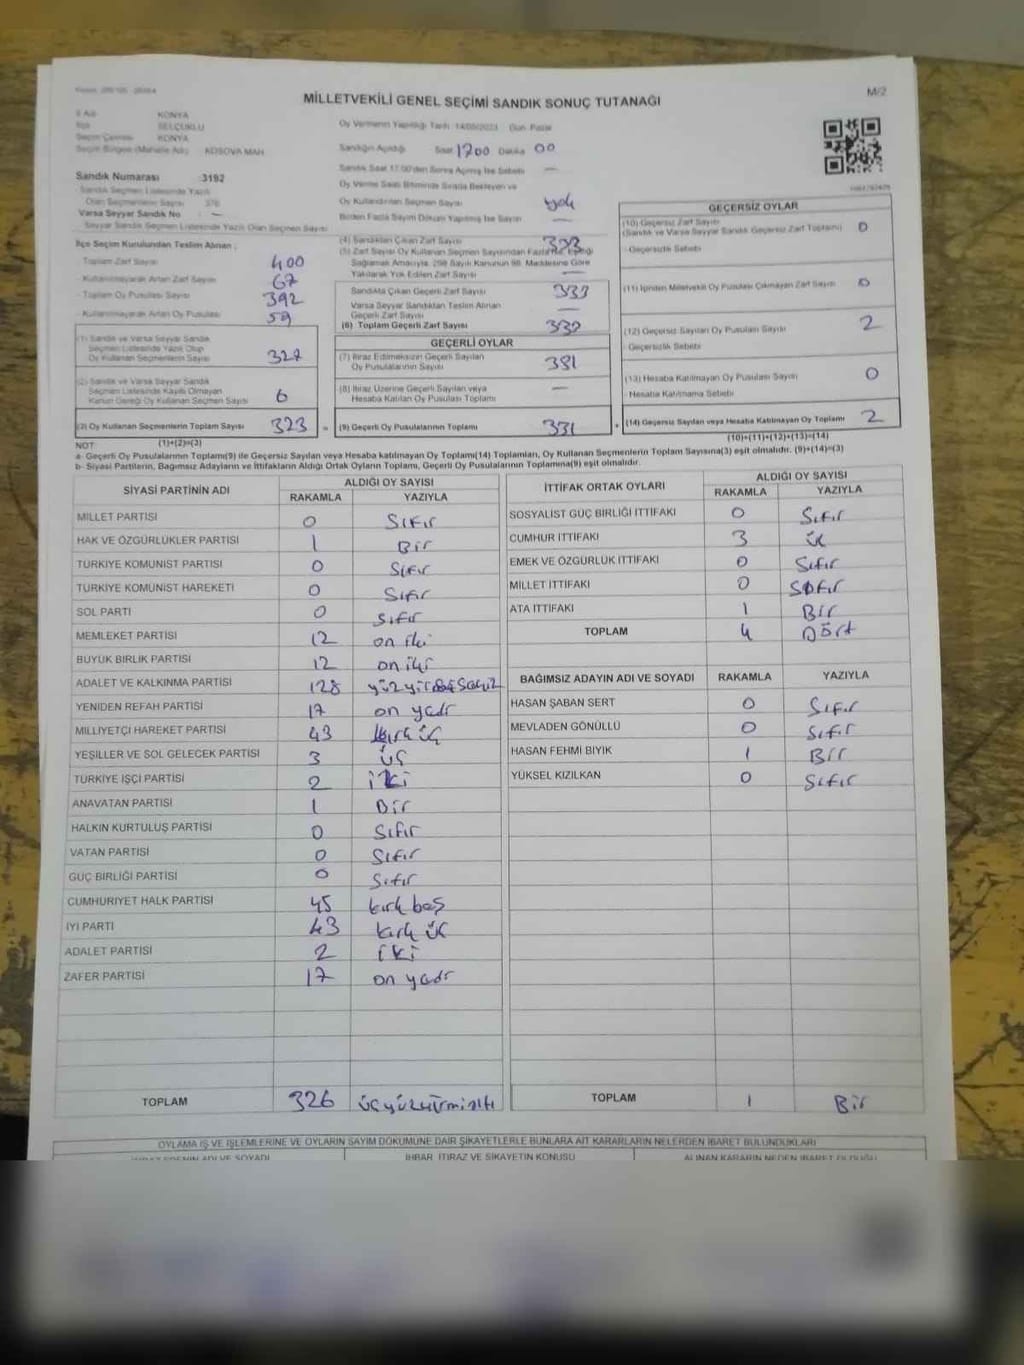 MİLLETVEKİLİ GENEL SEÇİMİ SANDIK SONUÇ TUTANAĞI
M/2
İl Adı KONYA
İlçe SELÇUKLU
Seçim Çevresi KONYA
Seçim Bölgesi (Mahalle Adı) KOSOVA MAH.
Oy Vermenin Yapıldığı Tarih 14/05/2023 Gün Pazar
Sandığın Açıldığı Saat 1700 Dakika 00
Sandık Saat 17:00'den Sonra Açılmış İse Sebebi —
Oy Verme Saati Bitiminde Sırada Bekleyen ve
Oy Kullandırılan Seçmen Sayısı yok
Birden Fazla Sayım Döküm Yapılmış İse Sayısı —
Sandık Numarası 3192
Sandık Seçmen Listesinde Yazılı
Olan Seçmenlerin Sayısı 376
Varsa Seyyar Sandık No —
Seyyar Sandık Seçmen Listesinde Yazılı Olan Seçmen Sayısı
İlçe Seçim Kurulundan Teslim Alınan ;
- Toplam Zarf Sayısı 400
- Kullanılmayarak Artan Zarf Sayısı 67
- Toplam Oy Pusulası Sayısı 392
- Kullanılmayarak Artan Oy Pusulası 59
(1) Sandık ve Varsa Seyyar Sandık
Seçmen Listesinde Yazılı Olup
Oy Kullanan Seçmenlerin Sayısı 327
(2) Sandık ve Varsa Seyyar Sandık
Seçmen Listesinde Kayıtlı Olmayan
Kanun Gereği Oy Kullanan Seçmen Sayısı 6
(3) Oy Kullanan Seçmenlerin Toplam Sayısı 323
(1)+(2)=(3)
(4) Sandıktan Çıkan Zarf Sayısı 333
(5) Zarf Sayısı Oy Kullanan Seçmen Sayısından Fazla İse, Eşitliği
Sağlamak Amacıyla, 298 Sayılı Kanunun 98. Maddesine Göre
Yakılarak Yok Edilen Zarf Sayısı —
Sandıkta Çıkan Geçerli Zarf Sayısı 333
Varsa Seyyar Sandıktan Teslim Alınan
Geçerli Zarf Sayısı —
(6) Toplam Geçerli Zarf Sayısı 333
GEÇERLİ OYLAR
(7) İtiraz Edilmeksizin Geçerli Sayılan
Oy Pusulalarının Sayısı 331
(8) İtiraz Üzerine Geçerli Sayılan veya
Hesaba Katılan Oy Pusulası Toplamı —
(9) Geçerli Oy Pusulalarının Toplamı 331
GEÇERSİZ OYLAR
(10) Geçersiz Zarf Sayısı
(Sandık ve Varsa Seyyar Sandık Geçersiz Zarf Toplamı) 0
- Geçersizlik Sebebi
(11) İçinden Milletvekili Oy Pusulası Çıkmayan Zarf Sayısı 0
(12) Geçersiz Sayılan Oy Pusulası Sayısı 2
- Geçersizlik Sebebi
(13) Hesaba Katılmayan Oy Pusulası Sayısı 0
- Hesaba Katılmama Sebebi
(14) Geçersiz Sayılan veya Hesaba Katılmayan Oy Toplamı 2
(10)+(11)+(12)+(13)=(14)
NOT:
a- Geçerli Oy Pusulalarının Toplamı(9) ile Geçersiz Sayılan veya Hesaba katılmayan Oy Toplamı(14) Toplamları, Oy Kullanan Seçmenlerin Toplam Sayısına(3) eşit olmalıdır. (9)+(14)=(3)
b- Siyasi Partilerin, Bağımsız Adayların ve İttifakların Aldığı Ortak Oyların Toplamı, Geçerli Oy Pusulalarının Toplamına(9) eşit olmalıdır.
SİYASİ PARTİNİN ADI ALDIĞI OY SAYISI
RAKAMLA YAZIYLA
MİLLET PARTİSİ 0 Sıfır
HAK VE ÖZGÜRLÜKLER PARTİSİ 1 Bir
TÜRKİYE KOMÜNİST PARTİSİ 0 Sıfır
TÜRKİYE KOMÜNİST HAREKETİ 0 Sıfır
SOL PARTİ 0 Sıfır
MEMLEKET PARTİSİ 12 on iki
BÜYÜK BİRLİK PARTİSİ 12 on iki
ADALET VE KALKINMA PARTİSİ 128
YENİDEN REFAH PARTİSİ 17 on yedi
MİLLİYETÇİ HAREKET PARTİSİ 43 kırk üç
YEŞİLLER VE SOL GELECEK PARTİSİ 3 üç
TÜRKİYE İŞÇİ PARTİSİ 2 iki
ANAVATAN PARTİSİ 1 Bir
HALKIN KURTULUŞ PARTİSİ 0 Sıfır
VATAN PARTİSİ 0 Sıfır
GÜÇ BİRLİĞİ PARTİSİ 0 Sıfır
CUMHURİYET HALK PARTİSİ 45 kırk beş
İYİ PARTİ 43 kırk üç
ADALET PARTİSİ 2 iki
ZAFER PARTİSİ 17 on yedi
TOPLAM 326 üçyüzyirmialtı
İTTİFAK ORTAK OYLARI ALDIĞI OY SAYISI
RAKAMLA YAZIYLA
SOSYALİST GÜÇ BİRLİĞİ İTTİFAKI 0 Sıfır
CUMHUR İTTİFAKI 3 üç
EMEK VE ÖZGÜRLÜK İTTİFAKI 0 Sıfır
MİLLET İTTİFAKI 0 Sıfır
ATA İTTİFAKI 1 Bir
TOPLAM 4 Dört
BAĞIMSIZ ADAYIN ADI VE SOYADI RAKAMLA YAZIYLA
HASAN ŞABAN SERT 0 Sıfır
MEVLADEN GÖNÜLLÜ 0 Sıfır
HASAN FEHMİ BIYIK 1 Bir
YÜKSEL KIZILKAN 0 Sıfır
TOPLAM 1 Bir
OYLAMA İŞ VE İŞLEMLERİNE VE OYLARIN SAYIM DÖKÜMÜNE DAİR ŞİKAYETLERLE BUNLARA AİT KARARLARIN NELERDEN İBARET BULUNDUKLARI
İHBAR, İTİRAZ VE ŞİKAYETİN KONUSU
ALINAN KARARIN NEDEN İBARET OLDUĞU